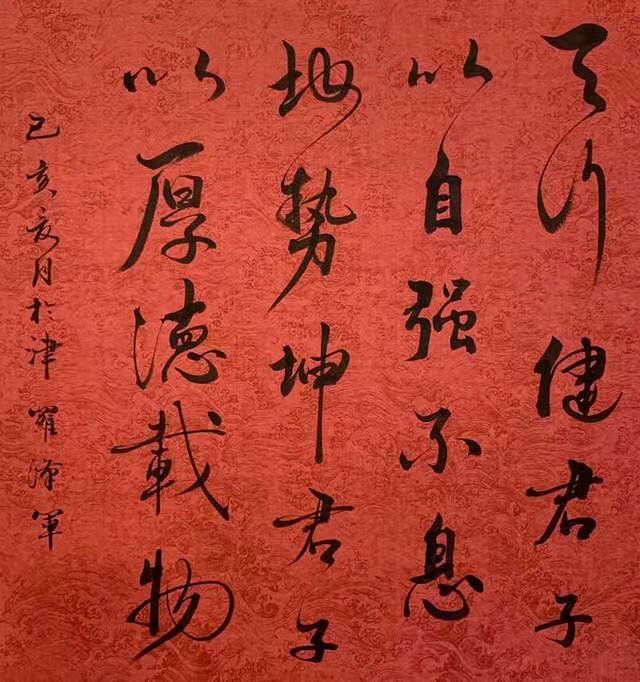 天行健君子
以自强不息
地势坤君子
以厚德載物
己亥夏月於津羅軍